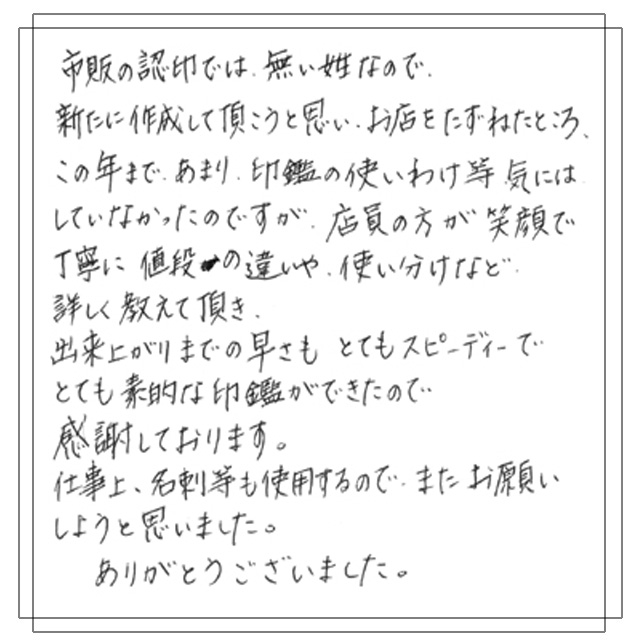 市販の認印では、無い姓なので、
新たに作成して頂こうと思い、お店をたずねたところ、
この年まで、あまり、印鑑の使いわけ等、気には
していなかったのですが、店員の方が笑顔で
丁寧に値段の違いや、使い分けなど、
詳しく教えて頂き、
出来上がりまでの早さも とてもスピーディーで
とても素的な印鑑ができたので
感謝しております。
仕事上、名刺等も使用するので、またお願い
しようと思いました。
ありがとうございました。